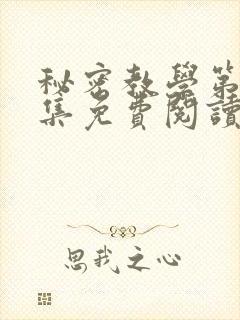 秘密教學第
集免費閱讀
思我之心